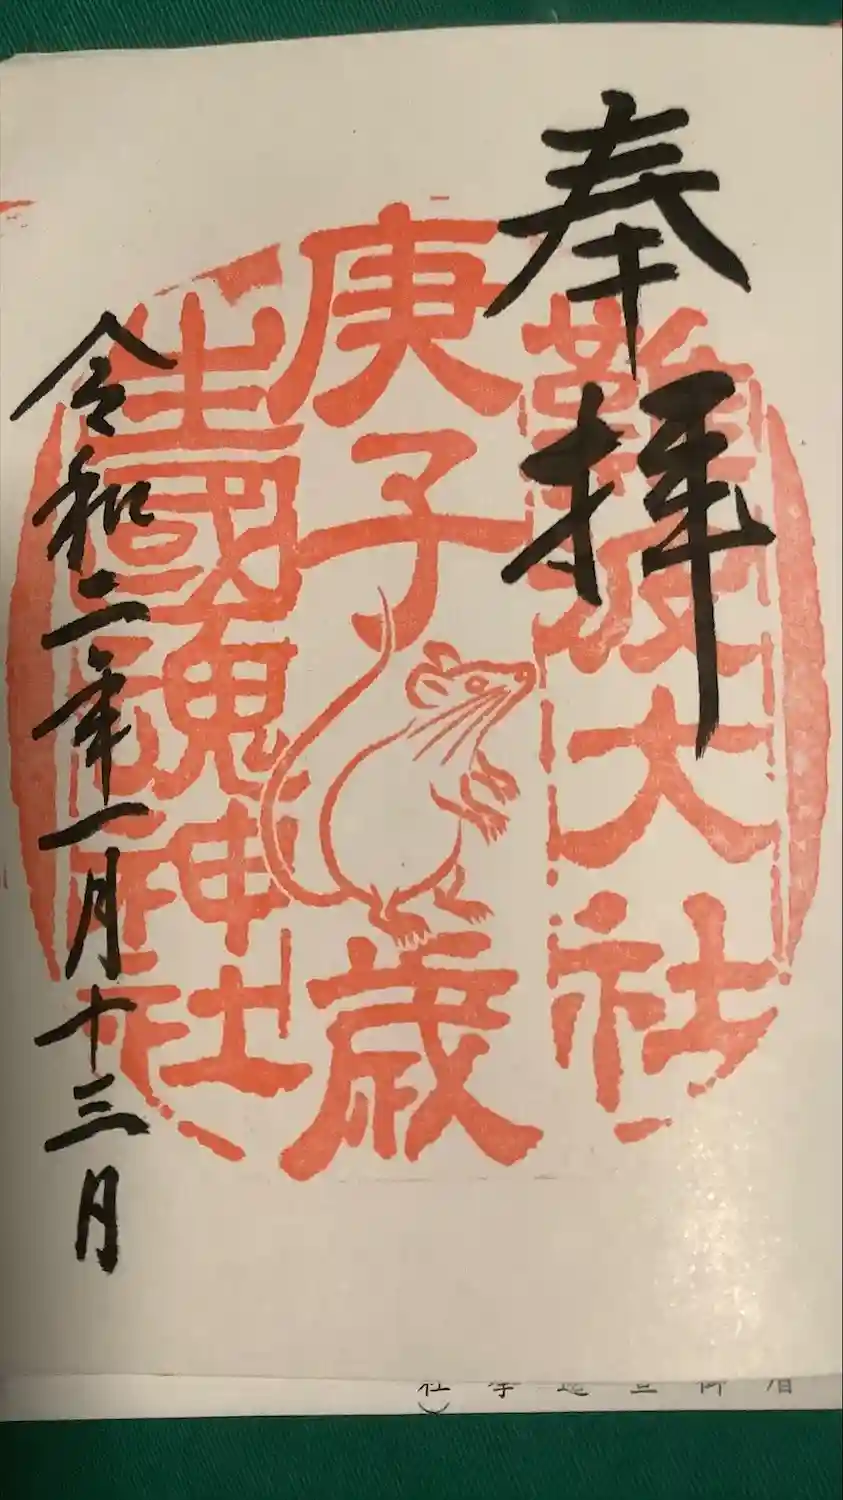 奉拝
難波大社
庚子
歳
生國魂神社
令和二年一月十三日